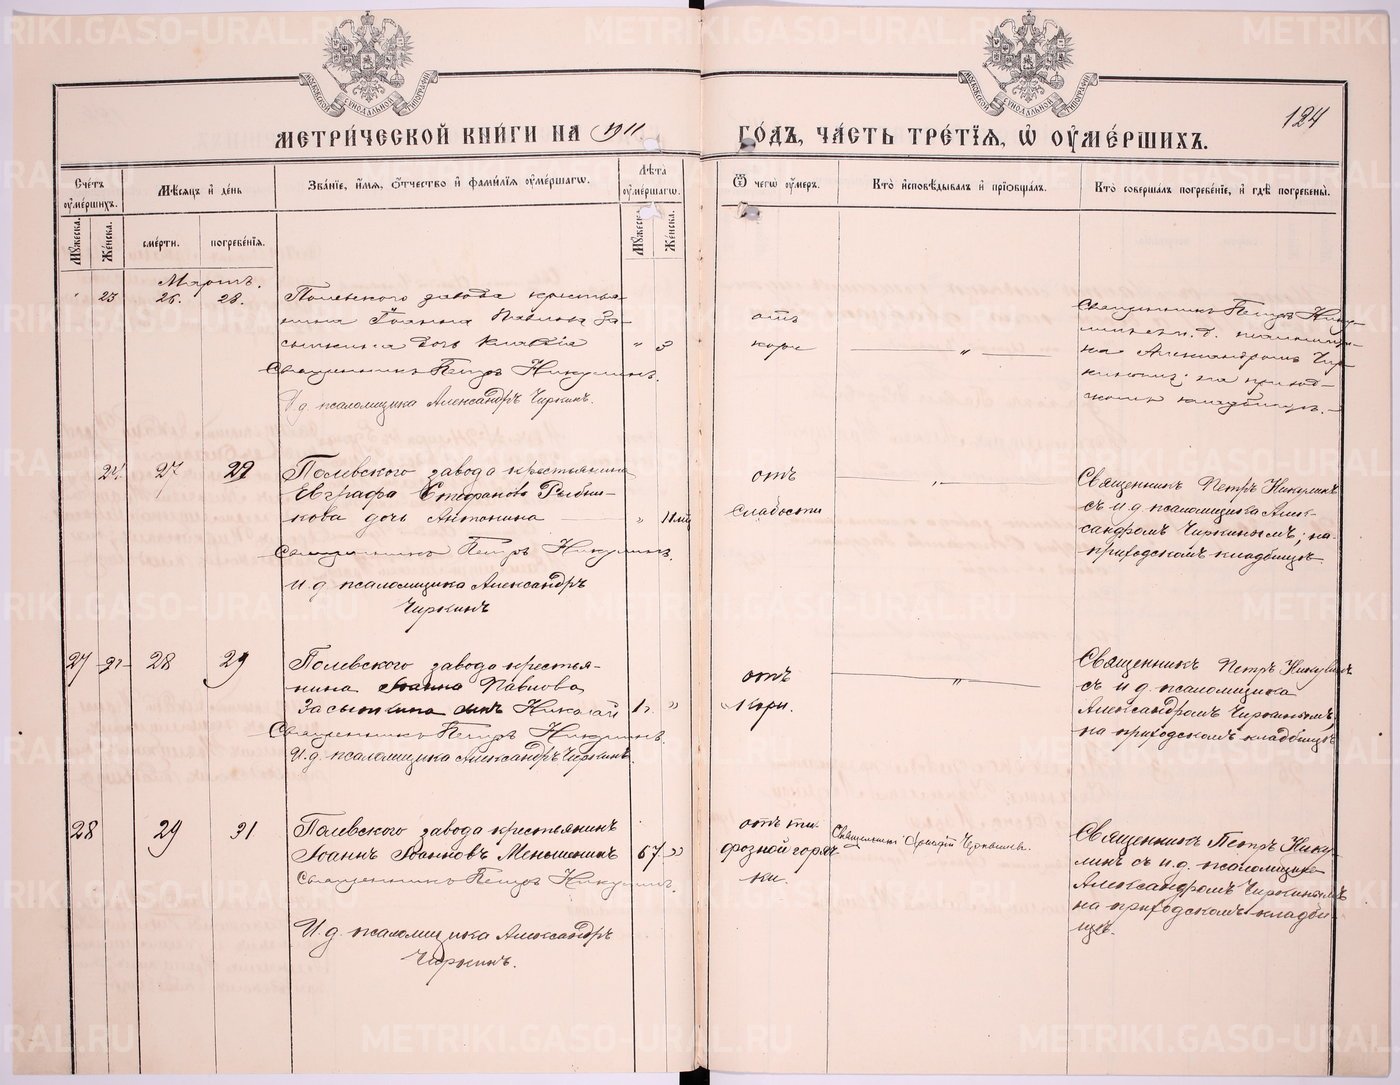 134
МЕТРИ́ЧЕСКОЙ КНИ́ГИ НА 1911 ГО́ДЪ, ЧА́СТЬ ТРЕ́ТІѦ, Ѡ ОУМЕ́РШИХЪ.
Сче́тъ оуме́ршихъ.
Мѣ́сѧцъ и де́нь
Зва́нїе, и́мѧ, ѻ́тчество и фами́лїѧ оуме́ршагѡ.
Лѣ́та оуме́ршагѡ.
Ѿ чегѡ̀ оу́меръ.
Кто̀ и҆сповѣ́дывалъ и҆ прїѡбща́лъ.
Кто̀ соверша́лъ погребе́нїе, и҆ гдѣ̀ погребены̀.
Мꙋ́жеска.
Же́нска.
сме́рти.
погребе́нїѧ.
Мꙋ́жеск.
Же́нска.
Мартъ.
23 26. 28.
Полевского завода крестья-
нина Іоанна Павлова За-
сыпкина дочь Клавдія " 3
Священникъ Петръ Никулинъ.
И. д. псаломщика Александръ Чиркинъ.
отъ
кори
"
Священникъ Петръ Нику-
линъ съ и. д. псаломщи-
ка Александромъ Чир-
кинымъ; на приход-
скомъ кладбищѣ.
24 27 29
Полевского завода крестьянина
Евграфа Стефанова Рыбни-
кова дочь Антонина " 11
Священникъ Петръ Никулинъ.
И. д. псаломщика Александръ
Чиркинъ
отъ
слабости
"
Священникъ Петръ Никулинъ
съ и. д. псаломщика Алек-
сандромъ Чиркинымъ; на
приходскомъ кладбищѣ
27 28 29
Полевского завода крестья-
нина Іоанна Павлова
Засыпкина сынъ Николай 1 г. "
Священникъ Петръ Никулинъ.
И. д. псаломщика Александръ Чиркинъ.
отъ
кори.
"
Священникъ Петръ Никулинъ
съ и. д. псаломщика
Александромъ Чиркинымъ,
на приходскомъ кладбищѣ
28 29 31
Полевского завода крестьянинъ
Іоаннъ Іоанновъ Меньшенинъ 67 "
Священникъ Петръ Никулинъ.
И. д. псаломщика Александръ
Чиркинъ.
отъ ти-
фозной горяч-
ки.
Священникъ
Священникъ Петръ Нику-
линъ съ и. д. псаломщика
Александромъ Чиркинымъ
на приходскомъ кладби-
щѣ.
METRIKI.GASO-URAL.RU